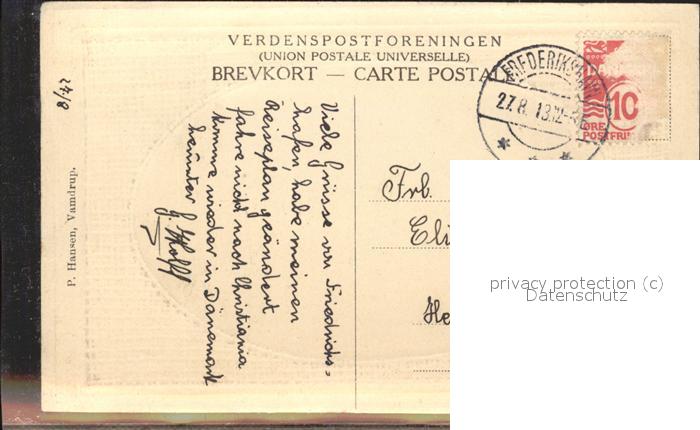 VERDENSPOSTFORENINGEN
(UNION POSTALE UNIVERSELLE)
BREVKORT — CARTE POSTALE
FREDERIKSHAVN
27.8.13.12-
10
ØRE
POSTFRIM
8/42
P. Hansen, Vamdrup.
Viele Grüsse von Friedrichs=
hafen, habe meinen
Reiseplan geändert
fahre nicht nach Christiania
komme wieder in Dänemark
herunter
Frl.
Eli
He
privacy protection (c)
Datenschutz